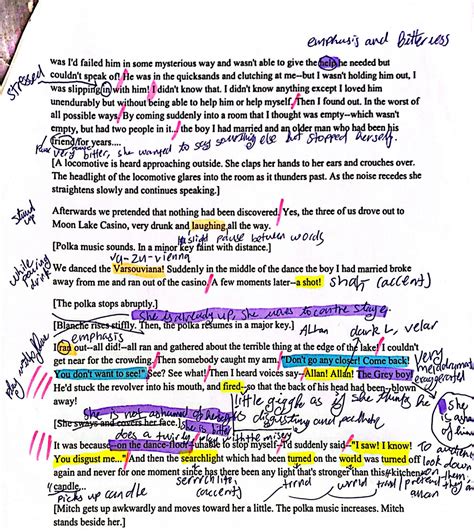 emphasis and Bitterness
was I'd failed him in some mysterious way and wasn't able to give the help he needed but
couldn't speak of! He was in the quicksands and clutching at me--but I wasn't holding him out, I
STRESSED
was slipping in with him! I didn't know that. I didn't know anything except I loved him
unendurably but without being able to help him or help myself. Then I found out. In the worst of
all possible ways. By coming suddenly into a room that I thought was empty--which wasn't
empty, but had two people in it... the boy I had married and an older man who had been his
friend for years....
very bitter, she wanted to say something else but stopped herself.
[A locomotive is heard approaching outside. She claps her hands to her ears and crouches over.
The headlight of the locomotive glares into the room as it thunders past. As the noise recedes she
straightens slowly and continues speaking.]
Stand up
Afterwards we pretended that nothing had been discovered. Yes, the three of us drove out to
Moon Lake Casino, very drunk and laughing all the way.
slight pause between words
[Polka music sounds. In a minor key faint with distance.]
while pouring drink
We danced the Varsouviana! Suddenly in the middle of the dance the boy I had married broke
away from me and ran out of the casino. A few moments later--a shot!
shot (accent)
[The polka stops abruptly.]
She is already up, she moves to centre stage.
[Blanche rises stiffly. Then, the polka resumes in a major key.]
emphasis
Allan dark L, velar
I ran out--all did!--all ran and gathered about the terrible thing at the edge of the lake! I couldn't
get near for the crowding. Then somebody caught my arm. "Don't go any closer! Come back!
You don't want to see!" See? See what! Then I heard voices say--Allan! Allan! The Grey boy!
Very melodramatic exaggerated
He'd stuck the revolver into his mouth, and fired--so that the back of his head had been--blown
away!
little giggle as if she thinks he is disgusting and pathetic
[She sways and covers her face.]
She is not ashamed of herself
she is afraid of him
does a twirly
little misery
It was because--on the dance-floor--unable to stop myself--I'd suddenly said--"I saw! I know!
You disgust me..." And then the searchlight which had been turned on the world was turned off
again and never for one moment since has there been any light that's stronger than this--kitchen--
candle...
picks up candle
(accent)
[Mitch gets up awkwardly and moves toward her a little. The polka music increases. Mitch
stands beside her.]